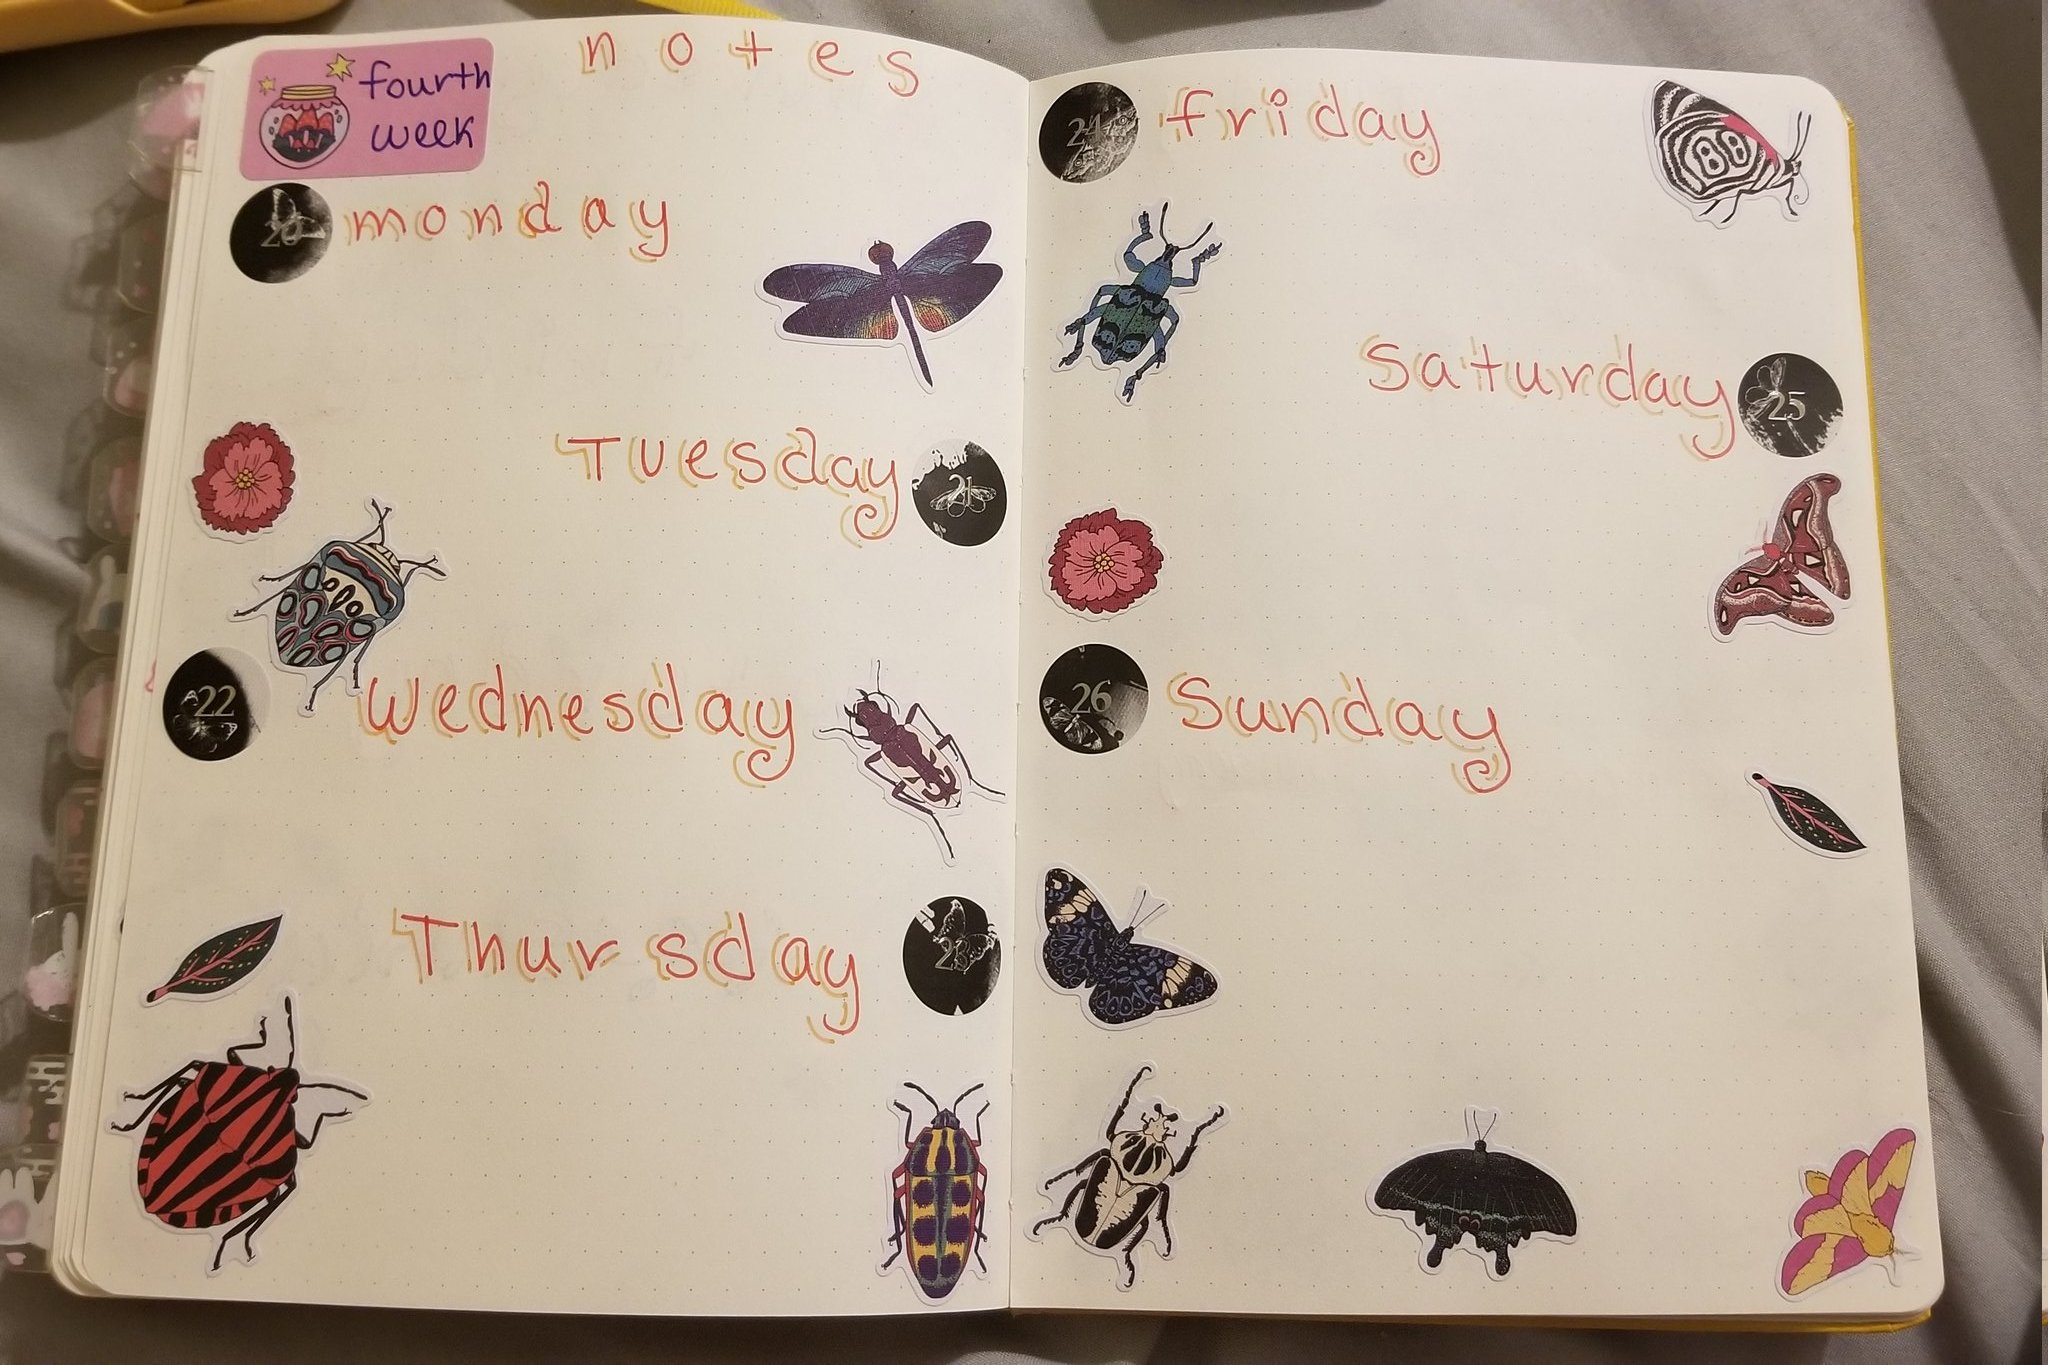 notes
fourth
week
20 monday
Tuesday 21
22 Wednesday
Thursday 23
24 friday
88
Saturday 25
26 Sunday